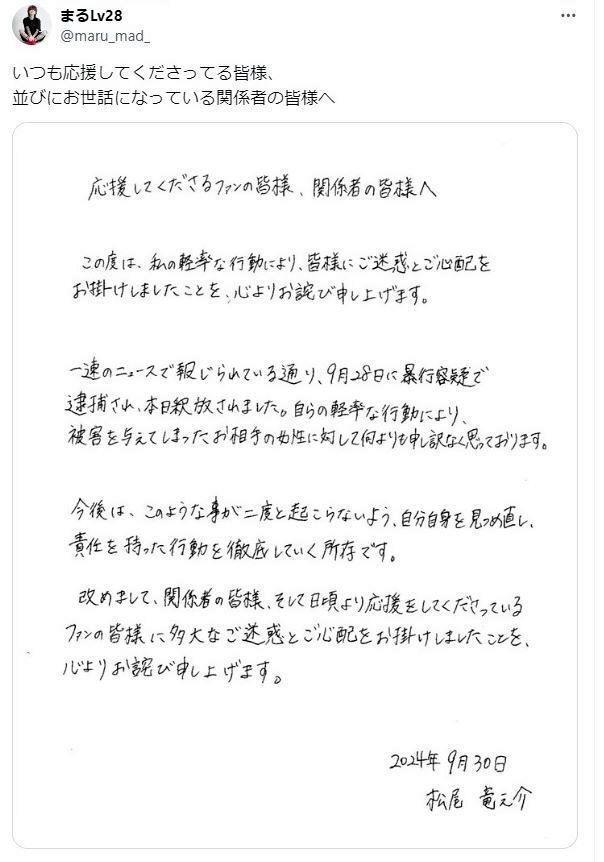 まるLv28
@maru_mad_
いつも応援してくださってる皆様、
並びにお世話になっている関係者の皆様へ
応援してくださるファンの皆様、関係者の皆様へ
この度は、私の軽率な行動により、皆様にご迷惑とご心配を
お掛けしましたことを、心よりお詫び申し上げます。
一連のニュースで報じられている通り、9月28日に暴行容疑で
逮捕され、本日釈放されました。自らの軽率な行動により、
被害を与えてしまったお相手の女性に対して何よりも申し訳なく思っております。
今後は、このような事が二度と起こらないよう、自分自身を見つめ直し、
責任を持った行動を徹底していく所存です。
改めまして、関係者の皆様、そして日頃より応援をしてくださっている
ファンの皆様に多大なご迷惑とご心配をお掛けしましたことを、
心よりお詫び申し上げます。
2024年9月30日
松尾 竜之介